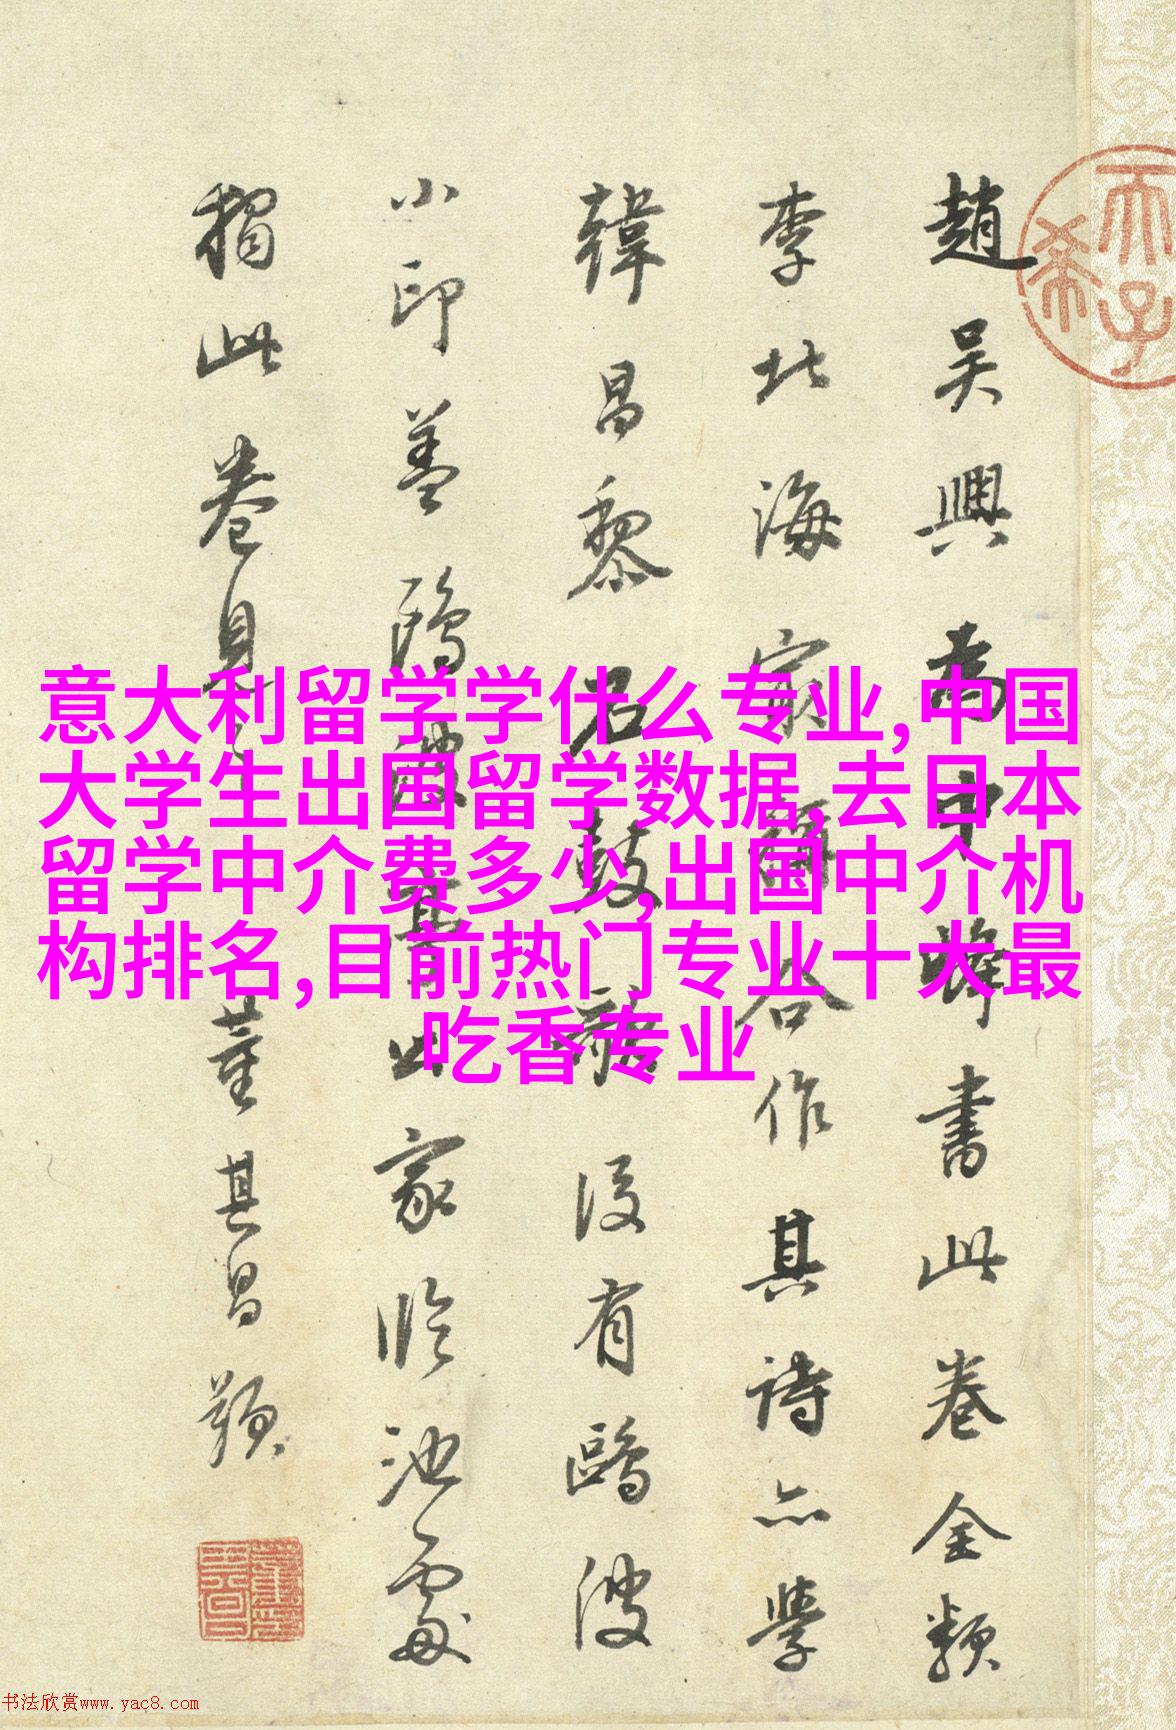 意大利留学学什么专业,中国
大学生出国留学数据,去日本
留学中介费多少,出国中介机
构排名,目前热门专业十大最
吃香专业
趙吳興為中峰書此卷全類
李北海㝡稱合作其詩亦學
韓昌黎石鼓歌後有鷗波
小印蓋鷗波亭家臨池處
此卷見之董其昌題
天子
希
书法欣赏www.yac8.com